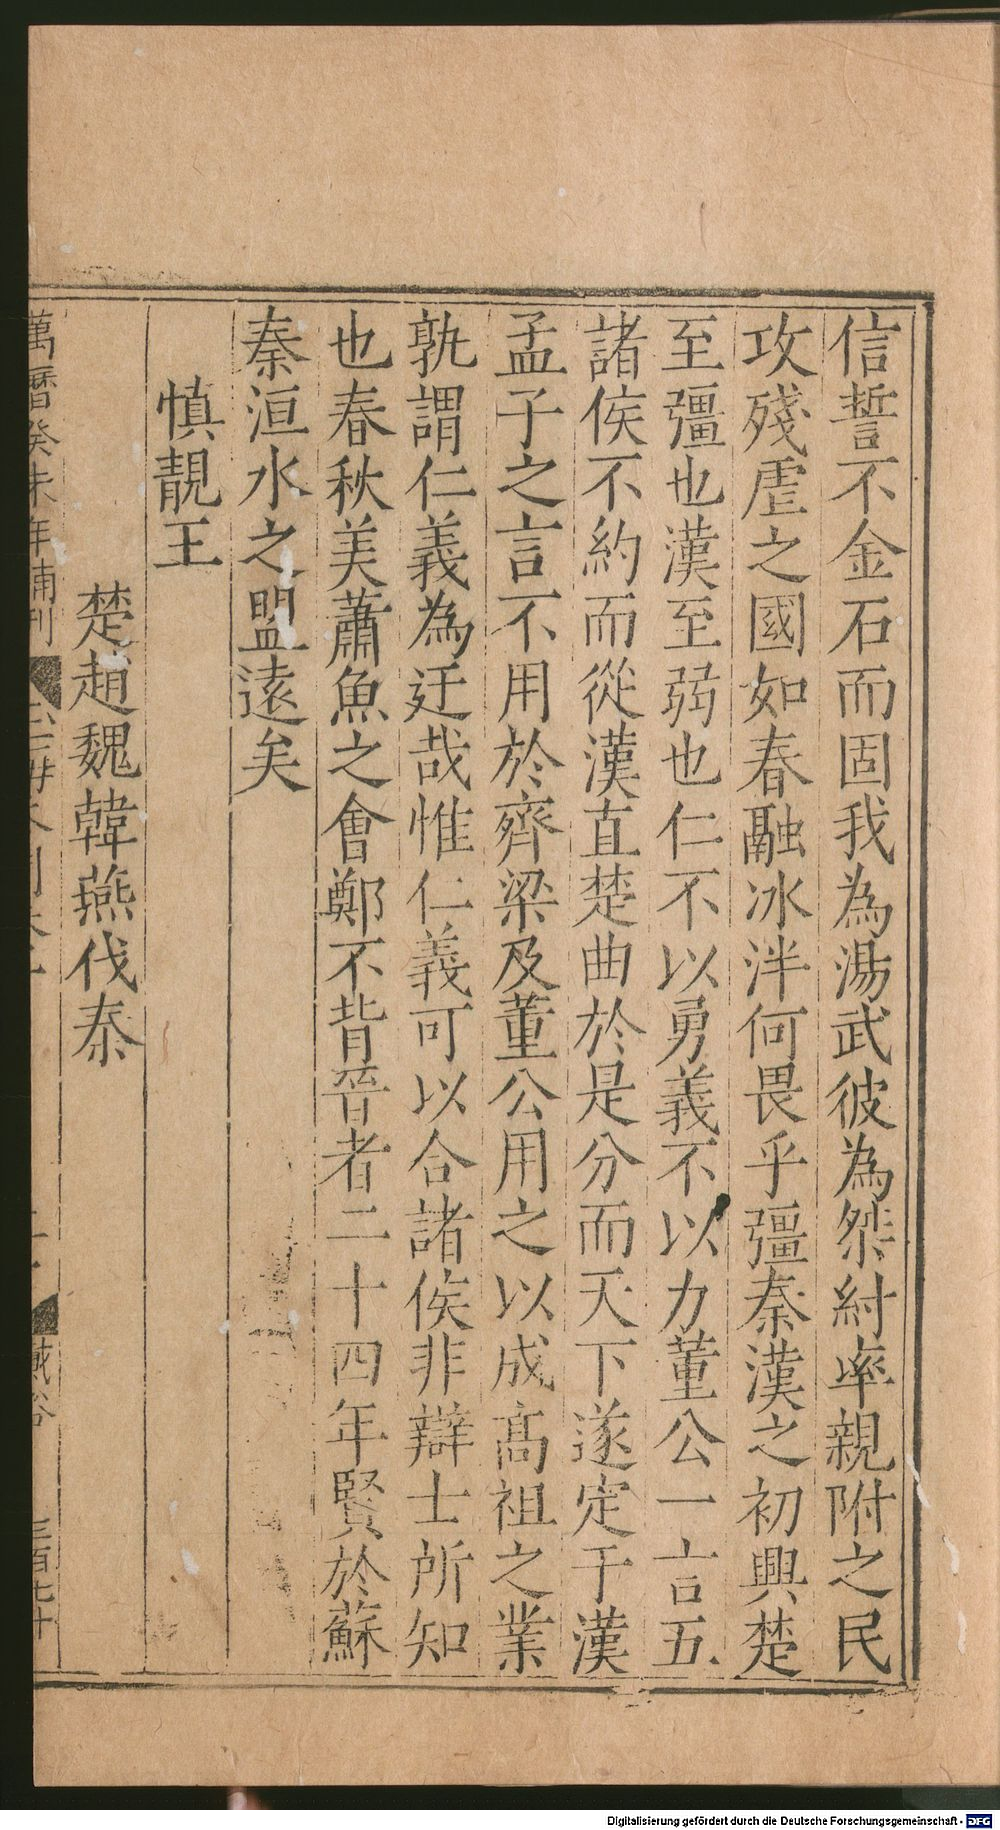 信誓不金石而固我為湯武彼為桀紂率親附之民
攻殘虐之國如春融冰泮何畏乎彊秦漢之初興楚
至彊也漢至弱也仁不以勇義不以力董公一言五
諸侯不約而從漢直楚曲於是分而天下遂定于漢
孟子之言不用於齊梁及董公用之以成高祖之業
孰謂仁義為迂哉惟仁義可以合諸侯非辯士所知
也春秋美蕭魚之會鄭不背晉者二十四年賢於蘇
秦洹水之盟遠矣
慎靚王
楚趙魏韓燕伐秦
萬曆癸未年補刊
戴谷
三百七十
Digitalisierung gefördert durch die Deutsche Forschungsgemeinschaft - DFG